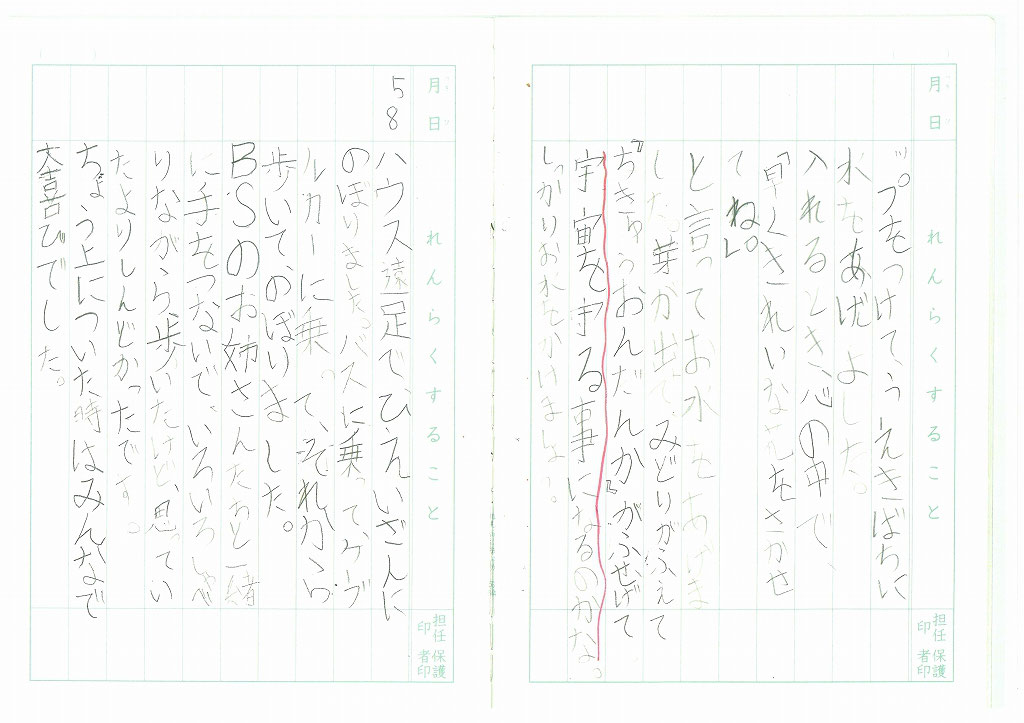 月 日
れんらくすること
担任印 保護者印
ップをつけて、うえきばちに
水をあげよした。
入れるとき、心の中で、
「早くきれいな花をさかせ
てね。」
と言ってお水をあげま
した。芽が出て、みどりがふえて
『ちきゅうおんだんか』がふせげて
宇宙を守る事になるのかな。
しっかりお水をかけましょう。
月 日
れんらくすること
担任印 保護者印
5 8
ハウス遠足で、ひえいざんに
のぼりました。バスに乗って、ケーブ
ルカーに乗って、それから
歩いて、のぼりました。
BSのお姉さんたちと一緒
に手をつないで、いろいろしゃべ
りながら、歩いたけど、思ってい
たよりしんどかったです。
ちょう上についた時はみんなで
大喜びでした。